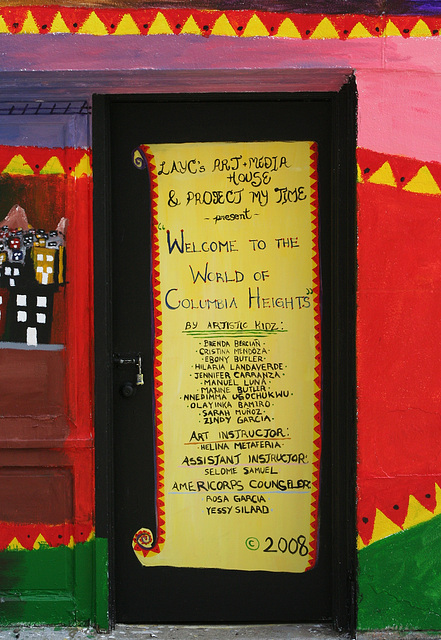 LAYC's ART + MEDIA
HOUSE
& PROJECT MY TIME
- present -
"WELCOME TO THE
WORLD OF
COLUMBIA HEIGHTS"
BY ARTISTIC KIDZ:
· BRENDA BERCIAN ·
· CRISTINA MENDOZA ·
· EBONY BUTLER ·
· HILARIA LANDAVERDE ·
· JENNIFER CARRANZA ·
· MANUEL LUNA ·
· MAXINE BUTLER ·
· NNEDIMMA UGOCHUKWU ·
· OLAYINKA BAMIRO ·
· SARAH MUÑOZ ·
· ZINDY GARCIA ·
ART INSTRUCTOR:
· HELINA METAFERIA ·
ASSISTANT INSTRUCTOR:
SELOME SAMUEL
AMERICORPS COUNSELER
ROSA GARCIA
YESSY SILARD
© 2008